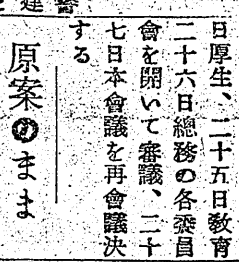 日厚生、二十五日敎育
二十六日總務の各委員
會を開いて審議、二十
七日本會議を再會議決
する
原案のまま